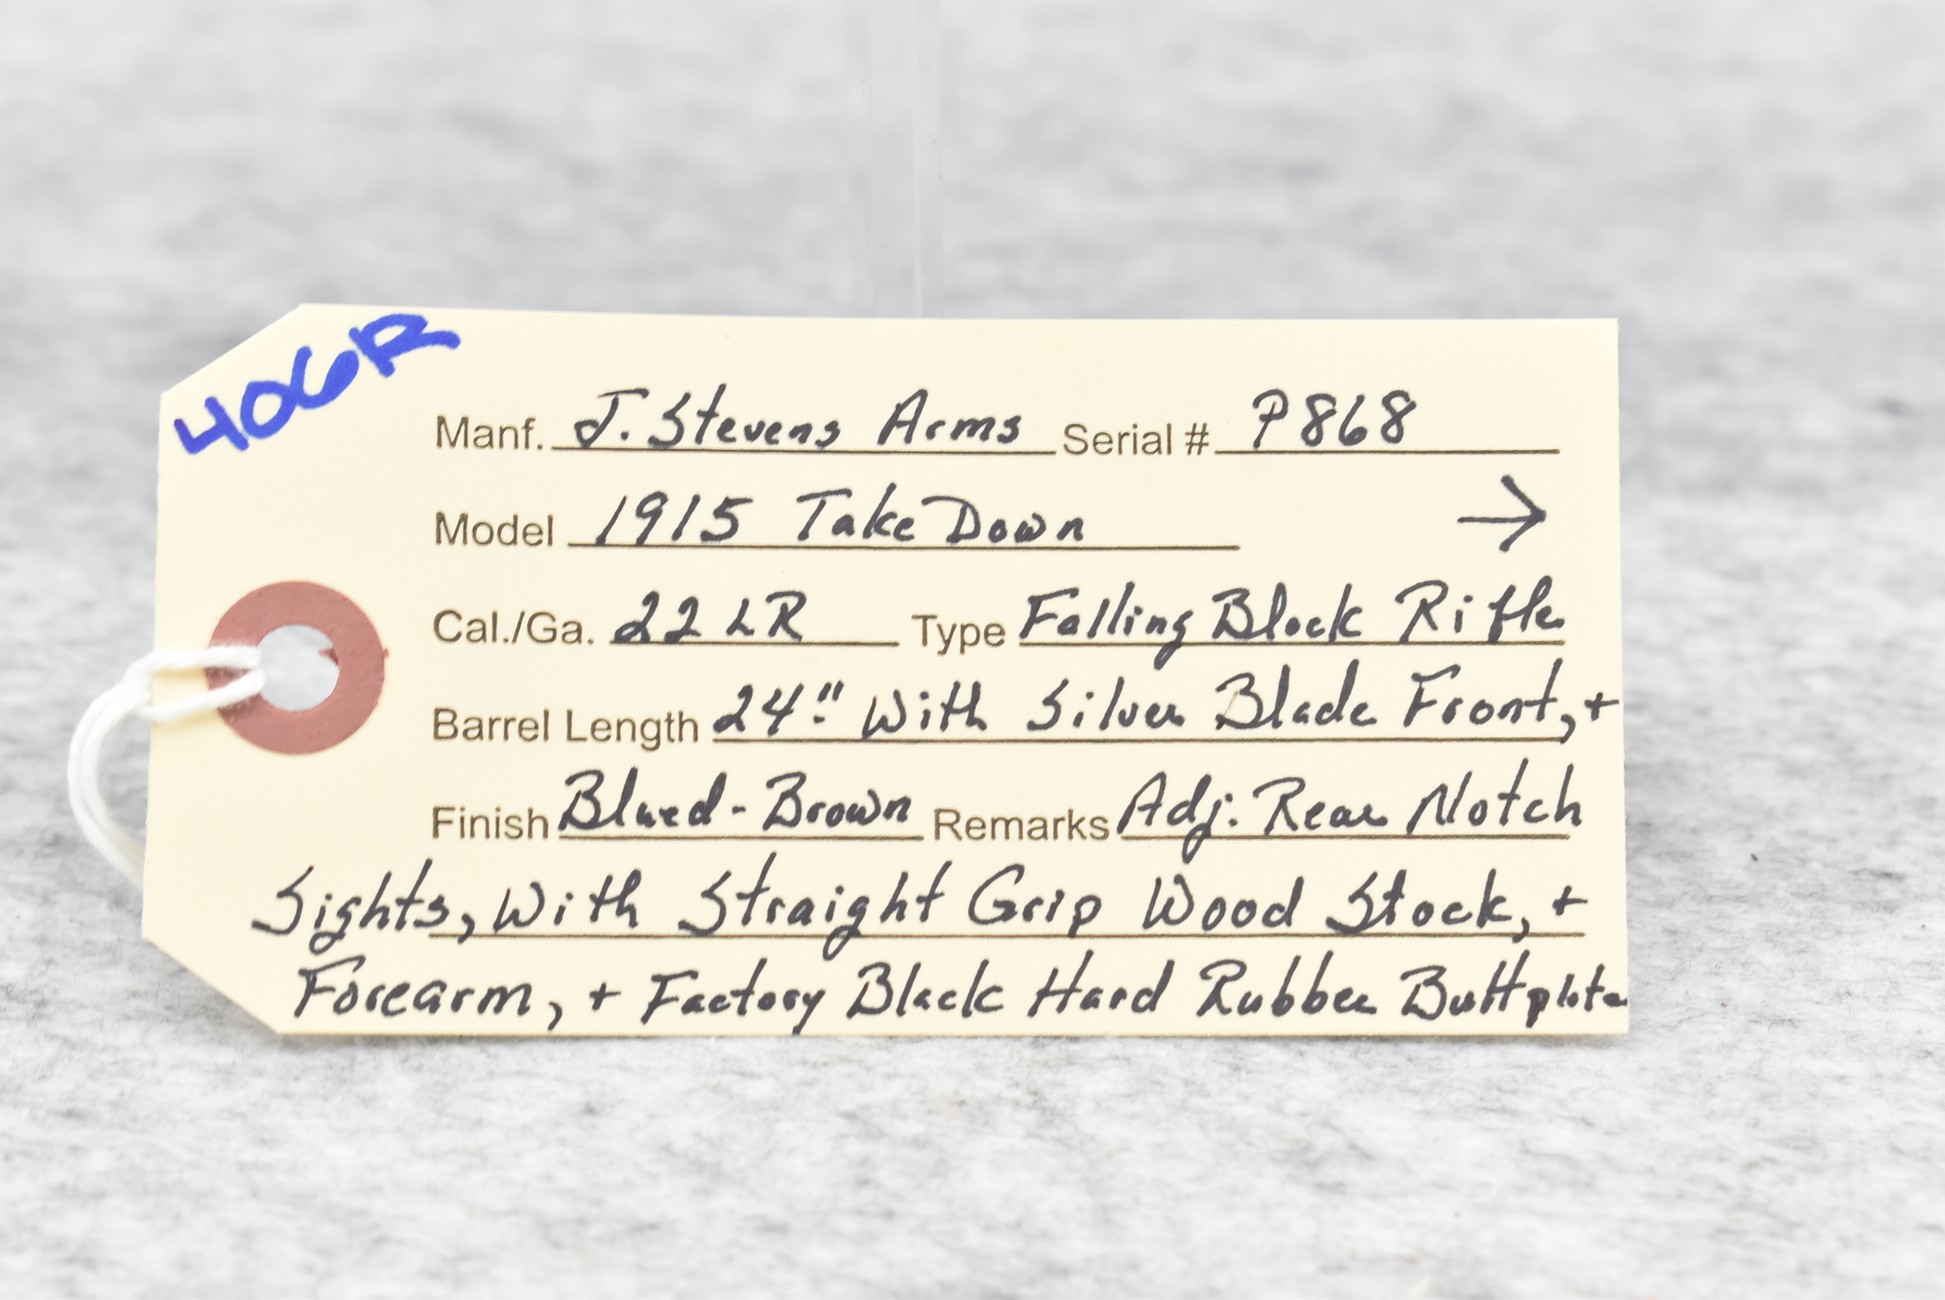 406R
Manf. J. Stevens Arms Serial # P868
Model 1915 TakeDown →
Cal./Ga. 22 LR Type Falling Block Rifle
Barrel Length 24" With Silver Blade Front, +
Finish Blued-Brown Remarks Adj. Rear Notch
Sights, With Straight Grip Wood Stock, +
Forearm, + Factory Black Hard Rubber Buttplate